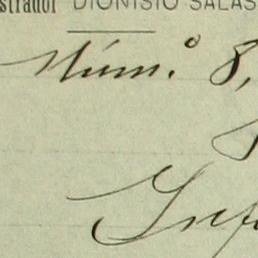 strador DIONISIO SALAS
Núm.º 8,
Inf